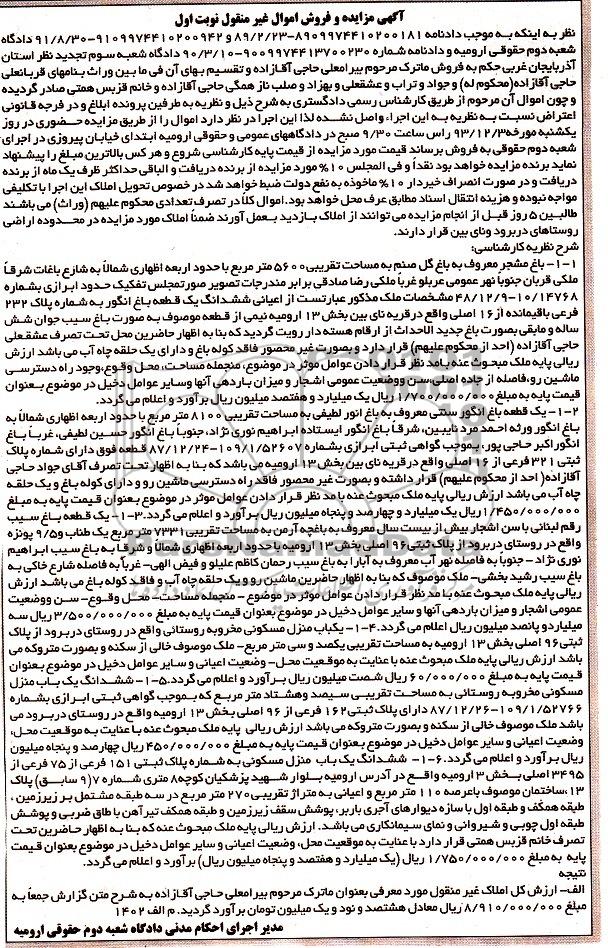 آگهی مزایده و فروش اموال غیر منقول نوبت اول
نظر به اینکه به موجب دادنامه ۸۹۰۹۹۷۴۴۱۰۲۰۰۱۸۱-۸۹/۲/۲۳ و ۹۱۰۹۹۷۴۴۱۰۲۰۰۹۴۲-۹۱/۸/۳۰ دادگاه
شعبه دوم حقوقی ارومیه و دادنامه شماره ۹۰۰۹۹۷۴۴۱۳۷۰۰۲۳۰-۹۰/۳/۱۰ دادگاه شعبه سوم تجدید نظر استان
آذربایجان غربی حکم به فروش ماترک مرحوم بیرامعلی حاجی آقازاده و تقسیم بهای آن فی ما بین وراث بنامهای قربانعلی
حاجی آقازاده(محکوم له) و جواد و تراب و عشقعلی و بهزاد و صلب ناز همگی حاجی آقازاده و خانم قزبس همتی صادر گردیده
و چون اموال آن مرحوم از طریق کارشناس رسمی دادگستری به شرح ذیل و نظریه به طرفین پرونده ابلاغ و در فرجه قانونی
اعتراض نسبت به نظریه به این اجراء واصل نشده لذا این اجرا در نظر دارد اموال را از طریق مزایده حضوری در روز
یکشنبه مورخه ۹۳/۱۲/۳ راس ساعت ۹/۳۰ صبح در دادگاههای عمومی و حقوقی ارومیه ابتدای خیابان پیروزی در اجرای
شعبه دوم حقوقی به فروش برساند قیمت مورد مزایده از قیمت پایه کارشناسی شروع و هر کس بالاترین مبلغ را پیشنهاد
نماید برنده مزایده خواهد بود نقداً و فی المجلس ۱۰% مورد مزایده از برنده دریافت و الباقی حداکثر ظرف یک ماه از برنده
دریافت و در صورت انصراف خیردار ۱۰% ماخوذه به نفع دولت ضبط خواهد شد در خصوص تحویل املاک این اجرا با تکلیفی
مواجه نبوده و هزینه انتقال اسناد مطابق عرف محل خواهد بود. اموال کلاً در تصرف تعدادی محکوم علیهم (وراث) می باشند
طالبین ۵ روز قبل از انجام مزایده می توانند از املاک بازدید بعمل آورند ضمناً املاک مورد مزایده در محدوده اراضی
روستاهای دربرود ونای بین قرار دارند.
شرح نظریه کارشناسی:
۱-۱- باغ مشجر معروف به باغ گل صنم به مساحت تقریبی ۵۶۰۰ متر مربع با حدود اربعه اظهاری شمالاً به شارع باغات شرقاً
ملکی قربان جنوباً نهر عمومی عربلو غرباً ملکی رضا صادقی برابر مندرجات تصویر صورتمجلس تفکیک حدود ابرازی بشماره
۱۰/۱۴۷۶۸-۴۸/۱۲/۹ مشخصات ملک مذکور عبارتست از اعیانی ششدانگ یک قطعه باغ انگور به شماره پلاک ۲۳۲
فرعی باقیمانده از ۱۶ اصلی واقع در قریه نای بین بخش ۱۳ ارومیه نیمی از قطعه موصوف به صورت باغ سیب جوان شش
ساله و مابقی بصورت باغ جدید الاحداث از ارقام هسته دار رویت گردید که بنا به اظهار حاضرین محل تحت تصرف عشقعلی
حاجی آقازاده (احد از محکوم علیهم) قرار دارد و بصورت غیر محصور فاقد کوله باغ و دارای یک حلقه چاه آب می باشد ارزش
ریالی پایه ملک مبحوث عنه بامد نظر قرار دادن عوامل موثر در موضوع، منجمله مساحت، محل وقوع، وجود راه دسترسی
ماشین رو،فاصله از جاده اصلی سن ووضعیت عمومی اشجار و میزان باردهی آنها وسایر عوامل دخیل در موضوع بعنوان
قیمت پایه به مبلغ ۱/۷۰۰/۰۰۰/۰۰۰ ریال یک میلیارد و هفتصد میلیون ریال برآورد و اعلام می گردد.
۱-۲- یک قطعه باغ انگور سنتی معروف به باغ انور لطیفی به مساحت تقریبی ۸۱۰۰ متر مربع با حدود اربعه اظهاری شمالاً به
باغ انگور ورثه احمد مرد نایبین، شرقاً باغ انگور ایستاده ابراهیم نوری نژاد، جنوباً باغ انگور حسین لطیفی، غرباً باغ
انگور اکبر حاجی پور، بموجب گواهی ثبتی ابرازی بشماره ۱۰۹/۱/۵۲۶۰۷-۸۷/۱۲/۲۴ قطعه فوق دارای شماره پلاک
ثبتی ۳۲۱ فرعی از ۱۶ اصلی واقع در قریه نای بین بخش ۱۳ ارومیه می باشد که بنا به اظهار تحت تصرف آقای جواد حاجی
آقازاده( احد از محکوم علیهم) قرار داشته و بصورت غیر محصور فاقد راه دسترسی ماشین رو و دارای کوله باغ و یک حلقه
چاه آب می باشد ارزش ریالی پایه ملک مبحوث عنه با مد نظر قرار دادن عوامل موثر در موضوع بعنوان قیمت پایه به مبلغ
۱/۴۵۰/۰۰۰/۰۰۰ ریال یک میلیارد و چهارصد و پنجاه میلیون ریال برآورد و اعلام می گردد. ۳-۱- یک قطعه باغ سیب
رقم لبنانی با سن اشجار بیش از بیست سال معروف به باغچه آرمن به مساحت تقریبی ۷۳۳۱ متر مربع یک طناب و ۹/۵ پونزه
واقع در روستای دربرود از پلاک ثبتی ۹۶ اصلی بخش ۱۳ ارومیه با حدود اربعه اظهاری شمالاً و شرقاً به باغ سیب ابراهیم
نوری نژاد - جنوباً به فاصله نهر آب معروف به آبارا به باغ سیب رحمان کاظم علیلو و فیض الهی- غرباً به فاصله شارع خاکی به
باغ سیب رشید بخشی- ملک موصوف که بنا به اظهار حاضرین ماشین رو و یک حلقه چاه آب و فاقد کوله باغ می باشد ارزش
ریالی پایه ملک مبحوث عنه با مد نظر قرار دادن عوامل موثر در موضوع - منجمله مساحت- محل وقوع- سن ووضعیت
عمومی اشجار و میزان باردهی آنها و سایر عوامل دخیل در موضوع بعنوان قیمت پایه به مبلغ ۳/۵۰۰/۰۰۰/۰۰۰ ریال سه
میلیارد و پانصد میلیون ریال اعلام می گردد. ۴-۱- یکباب منزل مسکونی مخروبه روستائی واقع در روستای دربرود از پلاک
ثبتی ۹۶ اصلی بخش ۱۳ ارومیه به مساحت تقریبی یکصد و سی متر مربع- ملک موصوف خالی از سکنه و بصورت متروکه می
باشد ارزش ریالی پایه ملک مبحوث عنه با عنایت به موقعیت محل- وضعیت اعیانی و سایر عوامل دخیل در موضوع بعنوان
قیمت پایه به مبلغ ۶۰/۰۰۰/۰۰۰ ریال شصت میلیون ریال برآورد و اعلام می گردد. ۵-۱- ششدانگ یک باب منزل
مسکونی مخروبه روستائی به مساحت تقریبی سیصد وهشتاد متر مربع که بموجب گواهی ثبتی ابرازی بشماره
۱۰۹/۱/۵۲۷۶۶-۸۷/۱۲/۲۶ دارای پلاک ثبتی ۱۶۲ فرعی از ۹۶ اصلی بخش ۱۳ ارومیه واقع در روستای دربرود می
باشد ملک موصوف خالی از سکنه و بصورت متروکه می باشد ارزش ریالی پایه ملک مبحوث عنه با عنایت به موقعیت محل،
وضعیت اعیانی و سایر عوامل دخیل در موضوع بعنوان قیمت پایه به مبلغ ۴۵۰/۰۰۰/۰۰۰ ریال چهارصد و پنجاه میلیون
ریال برآورد و اعلام می گردد. ۶-۱- ششدانگ یک باب منزل مسکونی به شماره پلاک ثبتی ۱۵۱ فرعی از ۷۵ فرعی از
۳۴۹۵ اصلی بخش ۳ ارومیه واقع در آدرس ارومیه بلوار شهید پزشکیان کوچه ۸ متری شماره ۷(۹ سابق) پلاک
۱۳، ساختمان موصوف باعرصه ۱۱۰ متر مربع و اعیانی به متراژ تقریبی ۲۷۰ متر مربع در سه طبقه مشتمل بر زیرزمین ،
طبقه همکف و طبقه اول با سازه دیوارهای آجری باربر، پوشش سقف زیرزمین و طبقه همکف تیر آهن با طاق ضربی و پوشش
طبقه اول چوبی و شیروانی و نمای سیمانکاری می باشد. ارزش ریالی پایه ملک مبحوث عنه که بنا به اظهار حاضرین تحت
تصرف خانم قزبس همتی قرار دارد با عنایت به موقعیت محل، وضعیت اعیانی و سایر عوامل دخیل در موضوع بعنوان قیمت
پایه به مبلغ ۱/۷۵۰/۰۰۰/۰۰۰ ریال (یک میلیارد و هفتصد و پنجاه میلیون ریال) برآورد و اعلام می گردد.
نتیجه
الف- ارزش کل املاک غیر منقول مورد معرفی بعنوان ماترک مرحوم بیرامعلی حاجی آقازاده به شرح متن گزارش جمعاً به
مبلغ ۸/۹۱۰/۰۰۰/۰۰۰ ریال معادل هشتصد و نود و یک میلیون تومان برآورد گردید. م الف ۱۴۰۲
مدیر اجرای احکام مدنی دادگاه شعبه دوم حقوقی ارومیه